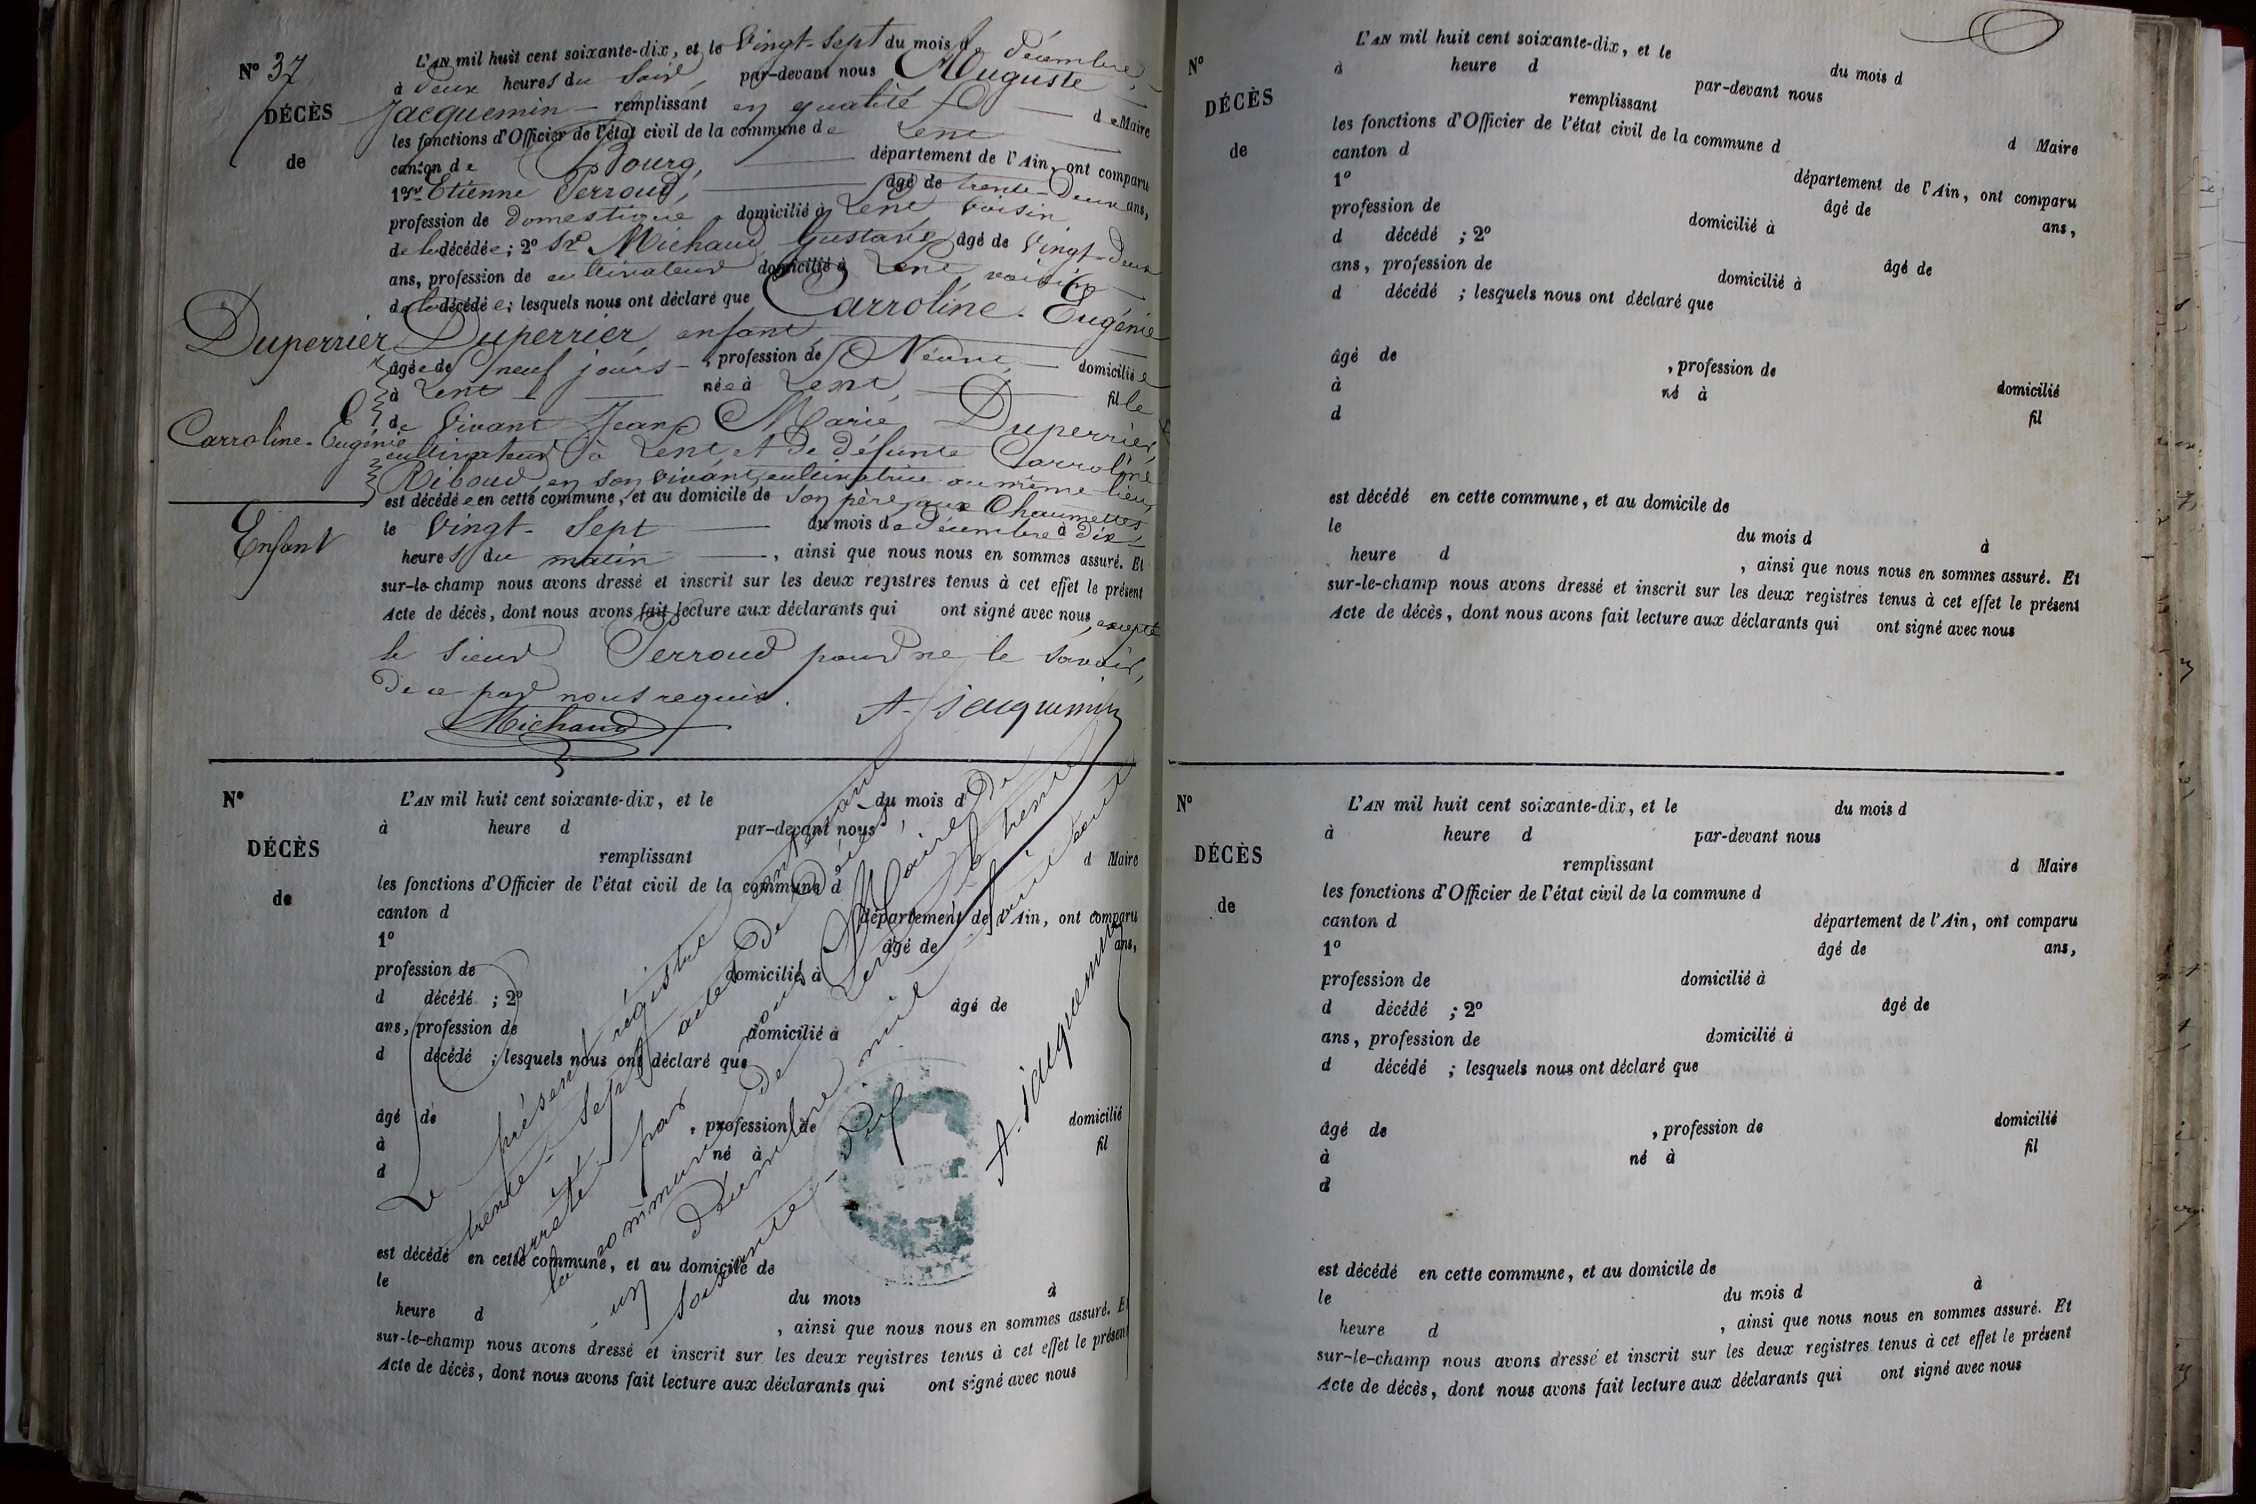 N° 37
DÉCÈS
de
Duperrier
Carroline-Eugénie
Enfant
L'AN mil huit cent soixante-dix, et le Vingt-Sept du mois de décembre,
à deux heures du Soir, par-devant nous Auguste
Jacquemin remplissant en qualité de Maire
les fonctions d'Officier de l'état civil de la commune de Lent
canton de Bourg, département de l'Ain, ont comparu
1° Sr Etienne Perroud, âgé de trente-Deux ans,
profession de domestique, domicilié à Lent, voisin
de la décédée ; 2° Sr Michaud Gustave, âgé de Vingt-Deux
ans, profession de cultivateur domicilié à Lent, voisin
de la décédée ; lesquels nous ont déclaré que Carroline-Eugénie
Duperrier, enfant,
âgée de neuf jours, profession de Néant, domiciliée
à Lent née à Lent, fille
de vivant Jean Marie Duperrier,
cultivateur à Lent, et de défunte Carroline
Riboud, en son vivant, cultivatrice au même lieu,
est décédée en cette commune, et au domicile de son père, aux Chaumettes
le Vingt-Sept du mois de décembre à dix
heures du matin, ainsi que nous nous en sommes assuré. Et
sur-le-champ nous avons dressé et inscrit sur les deux registres tenus à cet effet le présent
Acte de décès, dont nous avons fait lecture aux déclarants qui ont signé avec nous, excepté
le Sieur Perroud pour ne le savoir,
de ce par nous requis.
Michaud A. Jacquemin
N°
DÉCÈS
de
L'AN mil huit cent soixante-dix, et le du mois d
à heure d par-devant nous
remplissant d Maire
les fonctions d'Officier de l'état civil de la commune d
canton d département de l'Ain, ont comparu
1° âgé de ans,
profession de domicilié à
d décédé ; 2° âgé de
ans, profession de domicilié à
d décédé ; lesquels nous ont déclaré que
âgé de , profession de domicilié
à né à fil
d
est décédé en cette commune, et au domicile de
le du mois à
heure d , ainsi que nous nous en sommes assuré. Et
sur-le-champ nous avons dressé et inscrit sur les deux registres tenus à cet effet le présent
Acte de décès, dont nous avons fait lecture aux déclarants qui ont signé avec nous
Le présent régistre contenant
trente-Sept actes de Décès,
arrêté par nous Maire de
la commune de Lent, le trente
un Décembre mil huit cent
soixante-Dix
A. Jacquemin
N°
DÉCÈS
de
L'AN mil huit cent soixante-dix, et le du mois d
à heure d par-devant nous
remplissant d Maire
les fonctions d'Officier de l'état civil de la commune d
canton d département de l'Ain, ont comparu
1° âgé de ans,
profession de domicilié à
d décédé ; 2° âgé de
ans, profession de domicilié à
d décédé ; lesquels nous ont déclaré que
âgé de , profession de domicilié
à né à fil
d
est décédé en cette commune, et au domicile de
le du mois d à
heure d , ainsi que nous nous en sommes assuré. Et
sur-le-champ nous avons dressé et inscrit sur les deux registres tenus à cet effet le présent
Acte de décès, dont nous avons fait lecture aux déclarants qui ont signé avec nous
N°
DÉCÈS
de
L'AN mil huit cent soixante-dix, et le du mois d
à heure d par-devant nous
remplissant d Maire
les fonctions d'Officier de l'état civil de la commune d
canton d département de l'Ain, ont comparu
1° âgé de ans,
profession de domicilié à
d décédé ; 2° âgé de
ans, profession de domicilié à
d décédé ; lesquels nous ont déclaré que
âgé de , profession de domicilié
à né à fil
d
est décédé en cette commune, et au domicile de
le du mois d à
heure d , ainsi que nous nous en sommes assuré. Et
sur-le-champ nous avons dressé et inscrit sur les deux registres tenus à cet effet le présent
Acte de décès, dont nous avons fait lecture aux déclarants qui ont signé avec nous